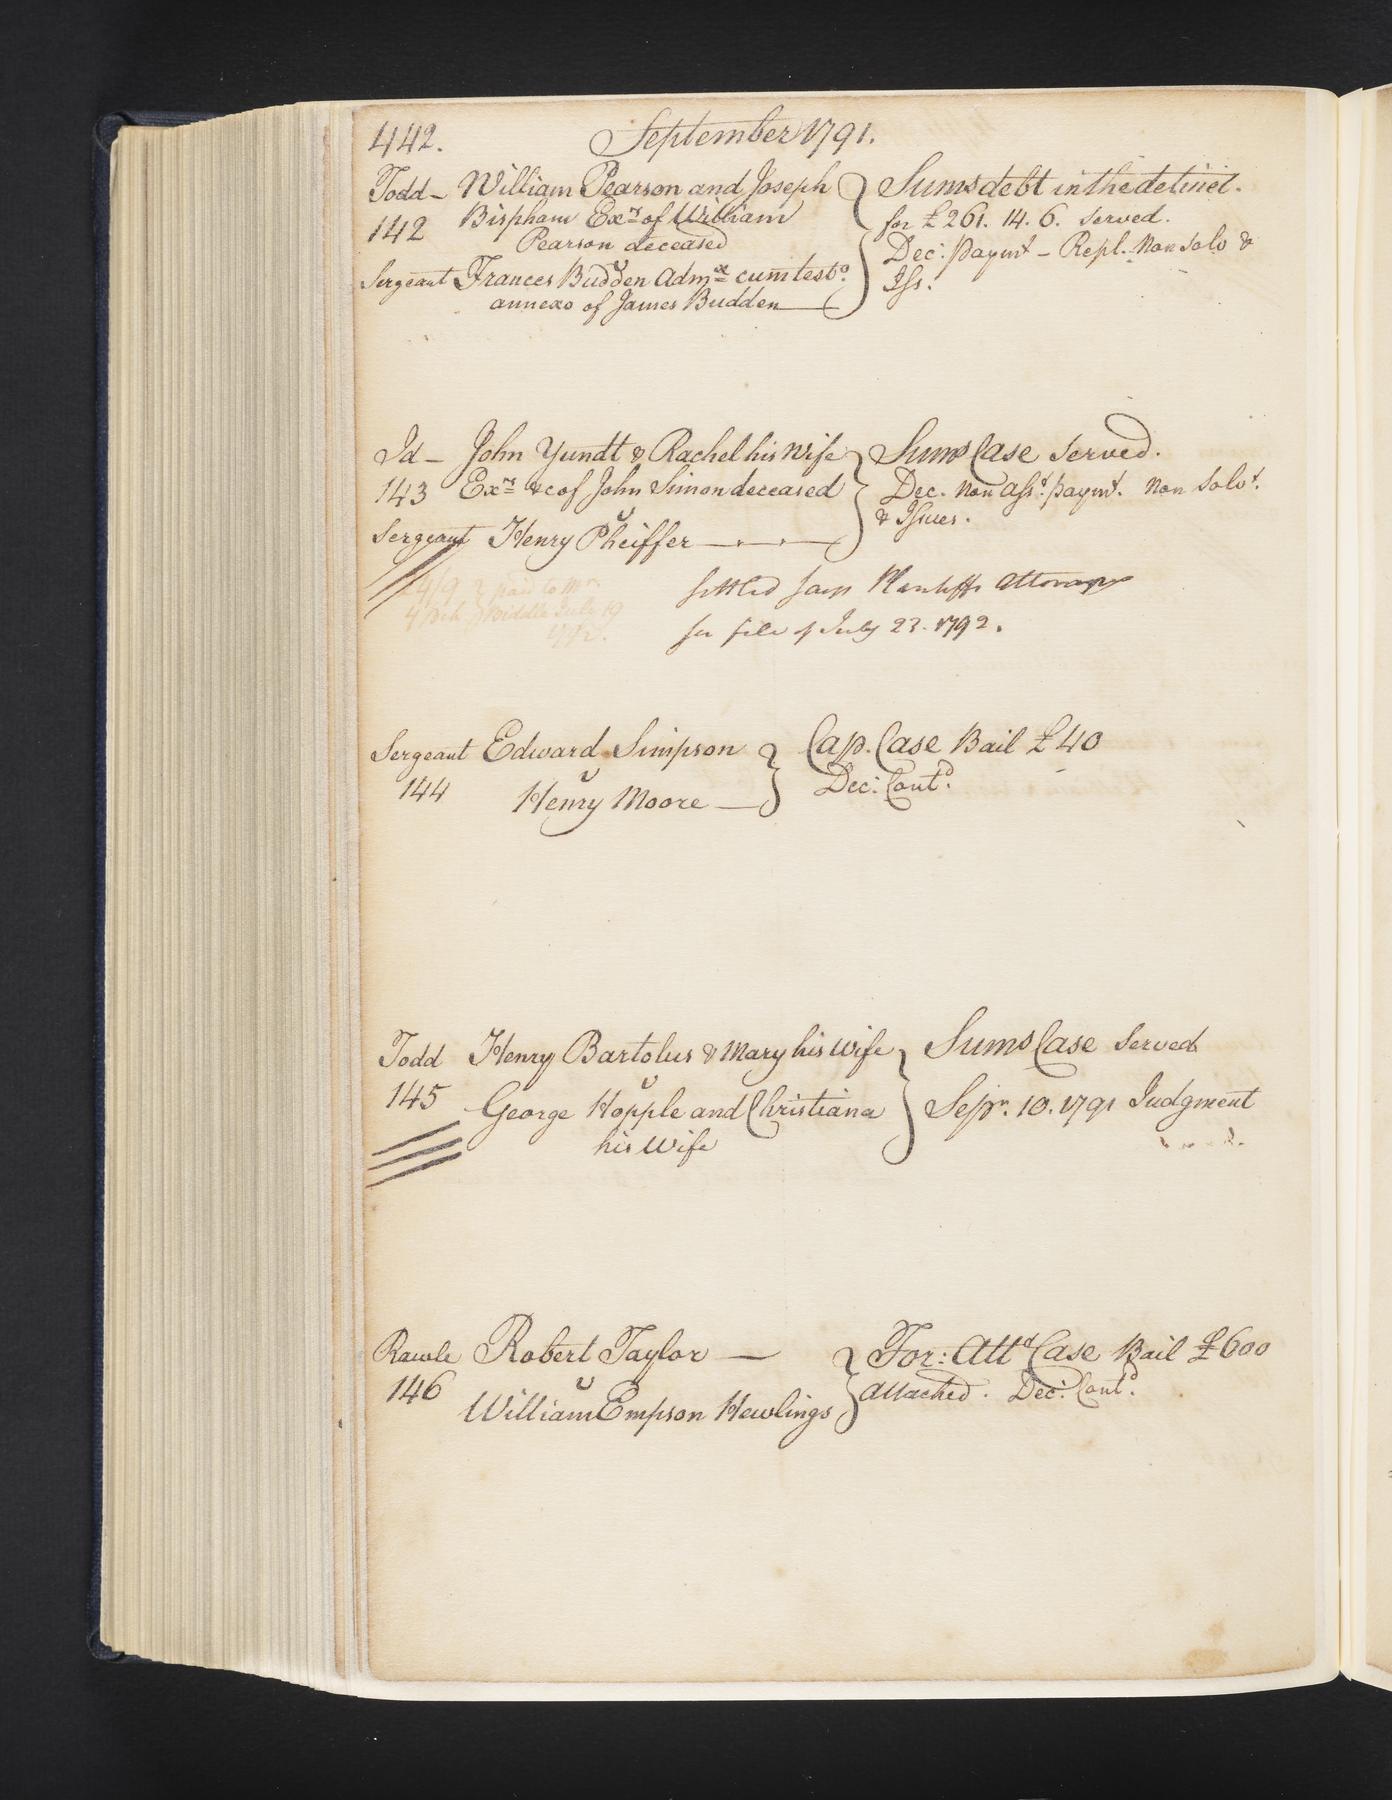 442. September 1791.
Todd – William Pearson and Joseph } Sums debt in the detinet.
142 Bispham Exrs of William for £261. 14. 6. Served.
Pearson deceased Dec: paymt – Repl. Non Solv &
v Iss.
Sergeant Frances Budden Admx cum testo.
annexo of James Budden
Id – John Yundt & Rachel his Wife } Sums Case Served.
143 Exrs &c of John Simon deceased Dec. Non Asst. paymt. Non Solvt.
v & Issues.
Sergeant Henry Pheiffer
24/9 } paid to Mr.
Biddle July 19
1792.
settled says Plantiffs Attorney
per file of July 23. 1792.
Sergeant Edward Simpson } Cap. Case Bail £40
144 v Dec: Contd.
Henry Moore
Todd Henry Bartolus & Mary his Wife } Sums Case Served
145 v
George Hopple and Christiana Sepr. 10. 1791 Judgment
his Wife
Rawle Robert Taylor — } For: Attd Case Bail £600
146 v attached. Dec: Contd.
William Empson Hewlings